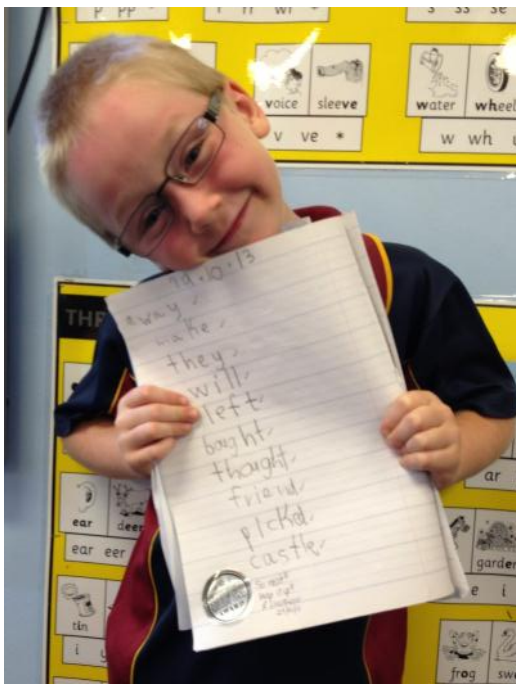 p pp
r rr wr
s ss se
voice sleeve
v ve *
water wheel
w wh
19.10.13
away
make
they
will
left
bought
thought
friend
picked
castle
THR
ear deer
ear eer
tin
i y
ar
garden
e i
frog swan